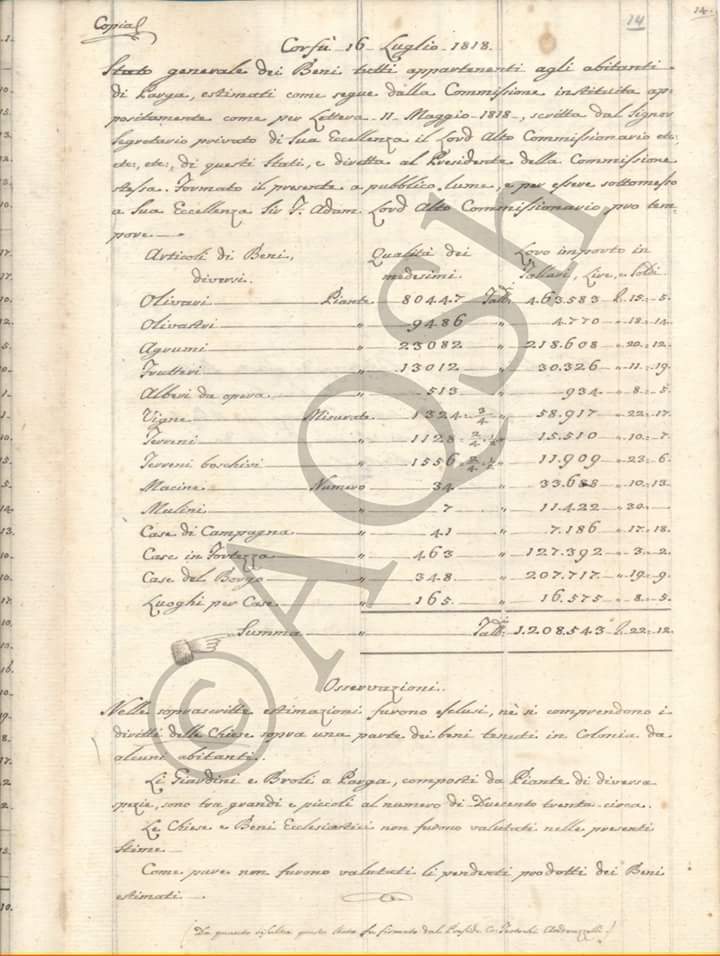 14.
14
Copia
Corfù 16 Luglio 1818.
Stato generale dei Beni tutti appartenenti agli abitanti
di Parga, estimati come segue dalla Commissione instituita ap-
positamente come per Lettera 11 Maggio 1818, scritta dal Signor
Segretario privato di Sua Eccellenza il Lord Alto Commissionario etc.,
etc., etc., di questi Stati, e diretta al Presidente della Commissione
stessa. Formato il presente a pubblico lume, e per essere sottomesso
a Sua Eccellenza Sir F. Adam Lord Alto Commissionario pro tem-
pore.
Articoli di Beni, Qualità dei Loro importo in
diversi. medesimi. Tallari, Lire, e Soldi
Olivari Piante 80447 Tall. 463.583 L. 15.-5.
Olivastri " 9486 " 4.770 " 18.-14.
Agrumi " 23082 " 218.608 " 20.-12.
Frutteri " 13012 " 30.326 " 11.-19.
Alberi da opera " 513 " 934 " 8.-5.
Vigne Misurate 1324 3/4 " 58.917 " 22.-17.
Terreni " 1128 2/4 1/2 " 15.510 " 10.-7.
Terreni boschivi " 1556 2/4 1/2 " 11.909 " 23.-6.
Macine Numero 34 " 33.688 " 10.-13.
Mulini " 7 " 11.422 " 30.-
Case di Campagna " 41 " 7.186 " 17.-18.
Case in Fortezza " 463 " 127.392 " 3.-2.
Case del Borgo " 348 " 207.717 " 19.-9.
Luoghi per Case " 165 " 16.575 " 8.-5.
Summa " Tall. 1.208.543 L. 22.-12.
Osservazioni.
Nelle soprascritte estimazioni furono esclusi, nè si comprendono i
diritti delle Chiese sopra una parte dei beni tenuti in Colonia da
alcuni abitanti.
Li Giardini e Broli a Parga, composti da Piante di diversa
spezie, sono tra grandi e piccoli al numero di Duecento trenta circa.
Le Chiese e Beni Ecclesiastici non furono valutati nelle presenti
stime.
Come pure non furono valutati li pendenti prodotti dei Beni
estimati.
(Da quanto risulta questo Stato fu firmato dal Preside Co:
© AOSK